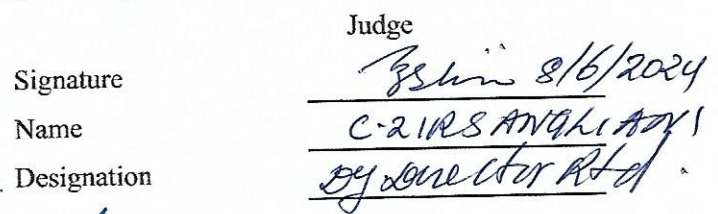 Judge
Signature 8/6/2024
Name C.ZIRSANGLIANI
Designation Dy Director Rtd.